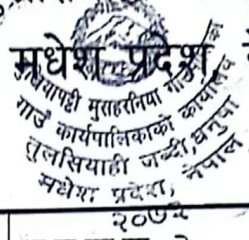 मधेश प्रदेश
मुसहरनिया गाउँपालिका
गाउँ कार्यपालिकाको कार्यालय
तुलसियाही जब्दी, धनुषा
मधेश प्रदेश, नेपाल
२०७३